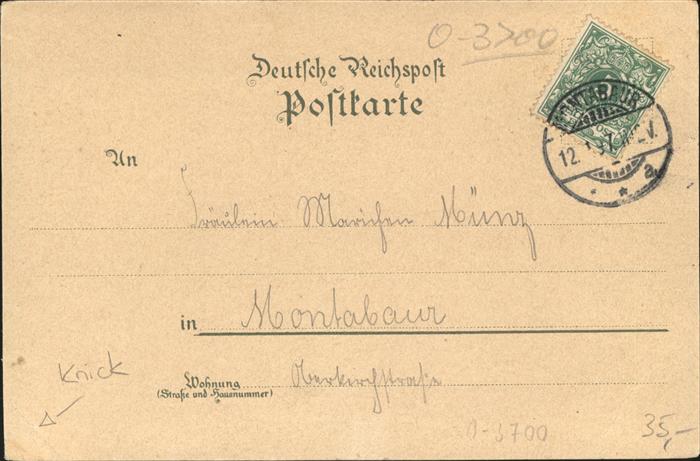 O-3700
Deutsche Reichspost
Postkarte
MONTABAUR
12.
V.
a.
An
Fräulein Marichen Münz
in Montabaur
Wohnung Oberkirchstraße
(Straße und Hausnummer)
Knick
O-3700
35,-